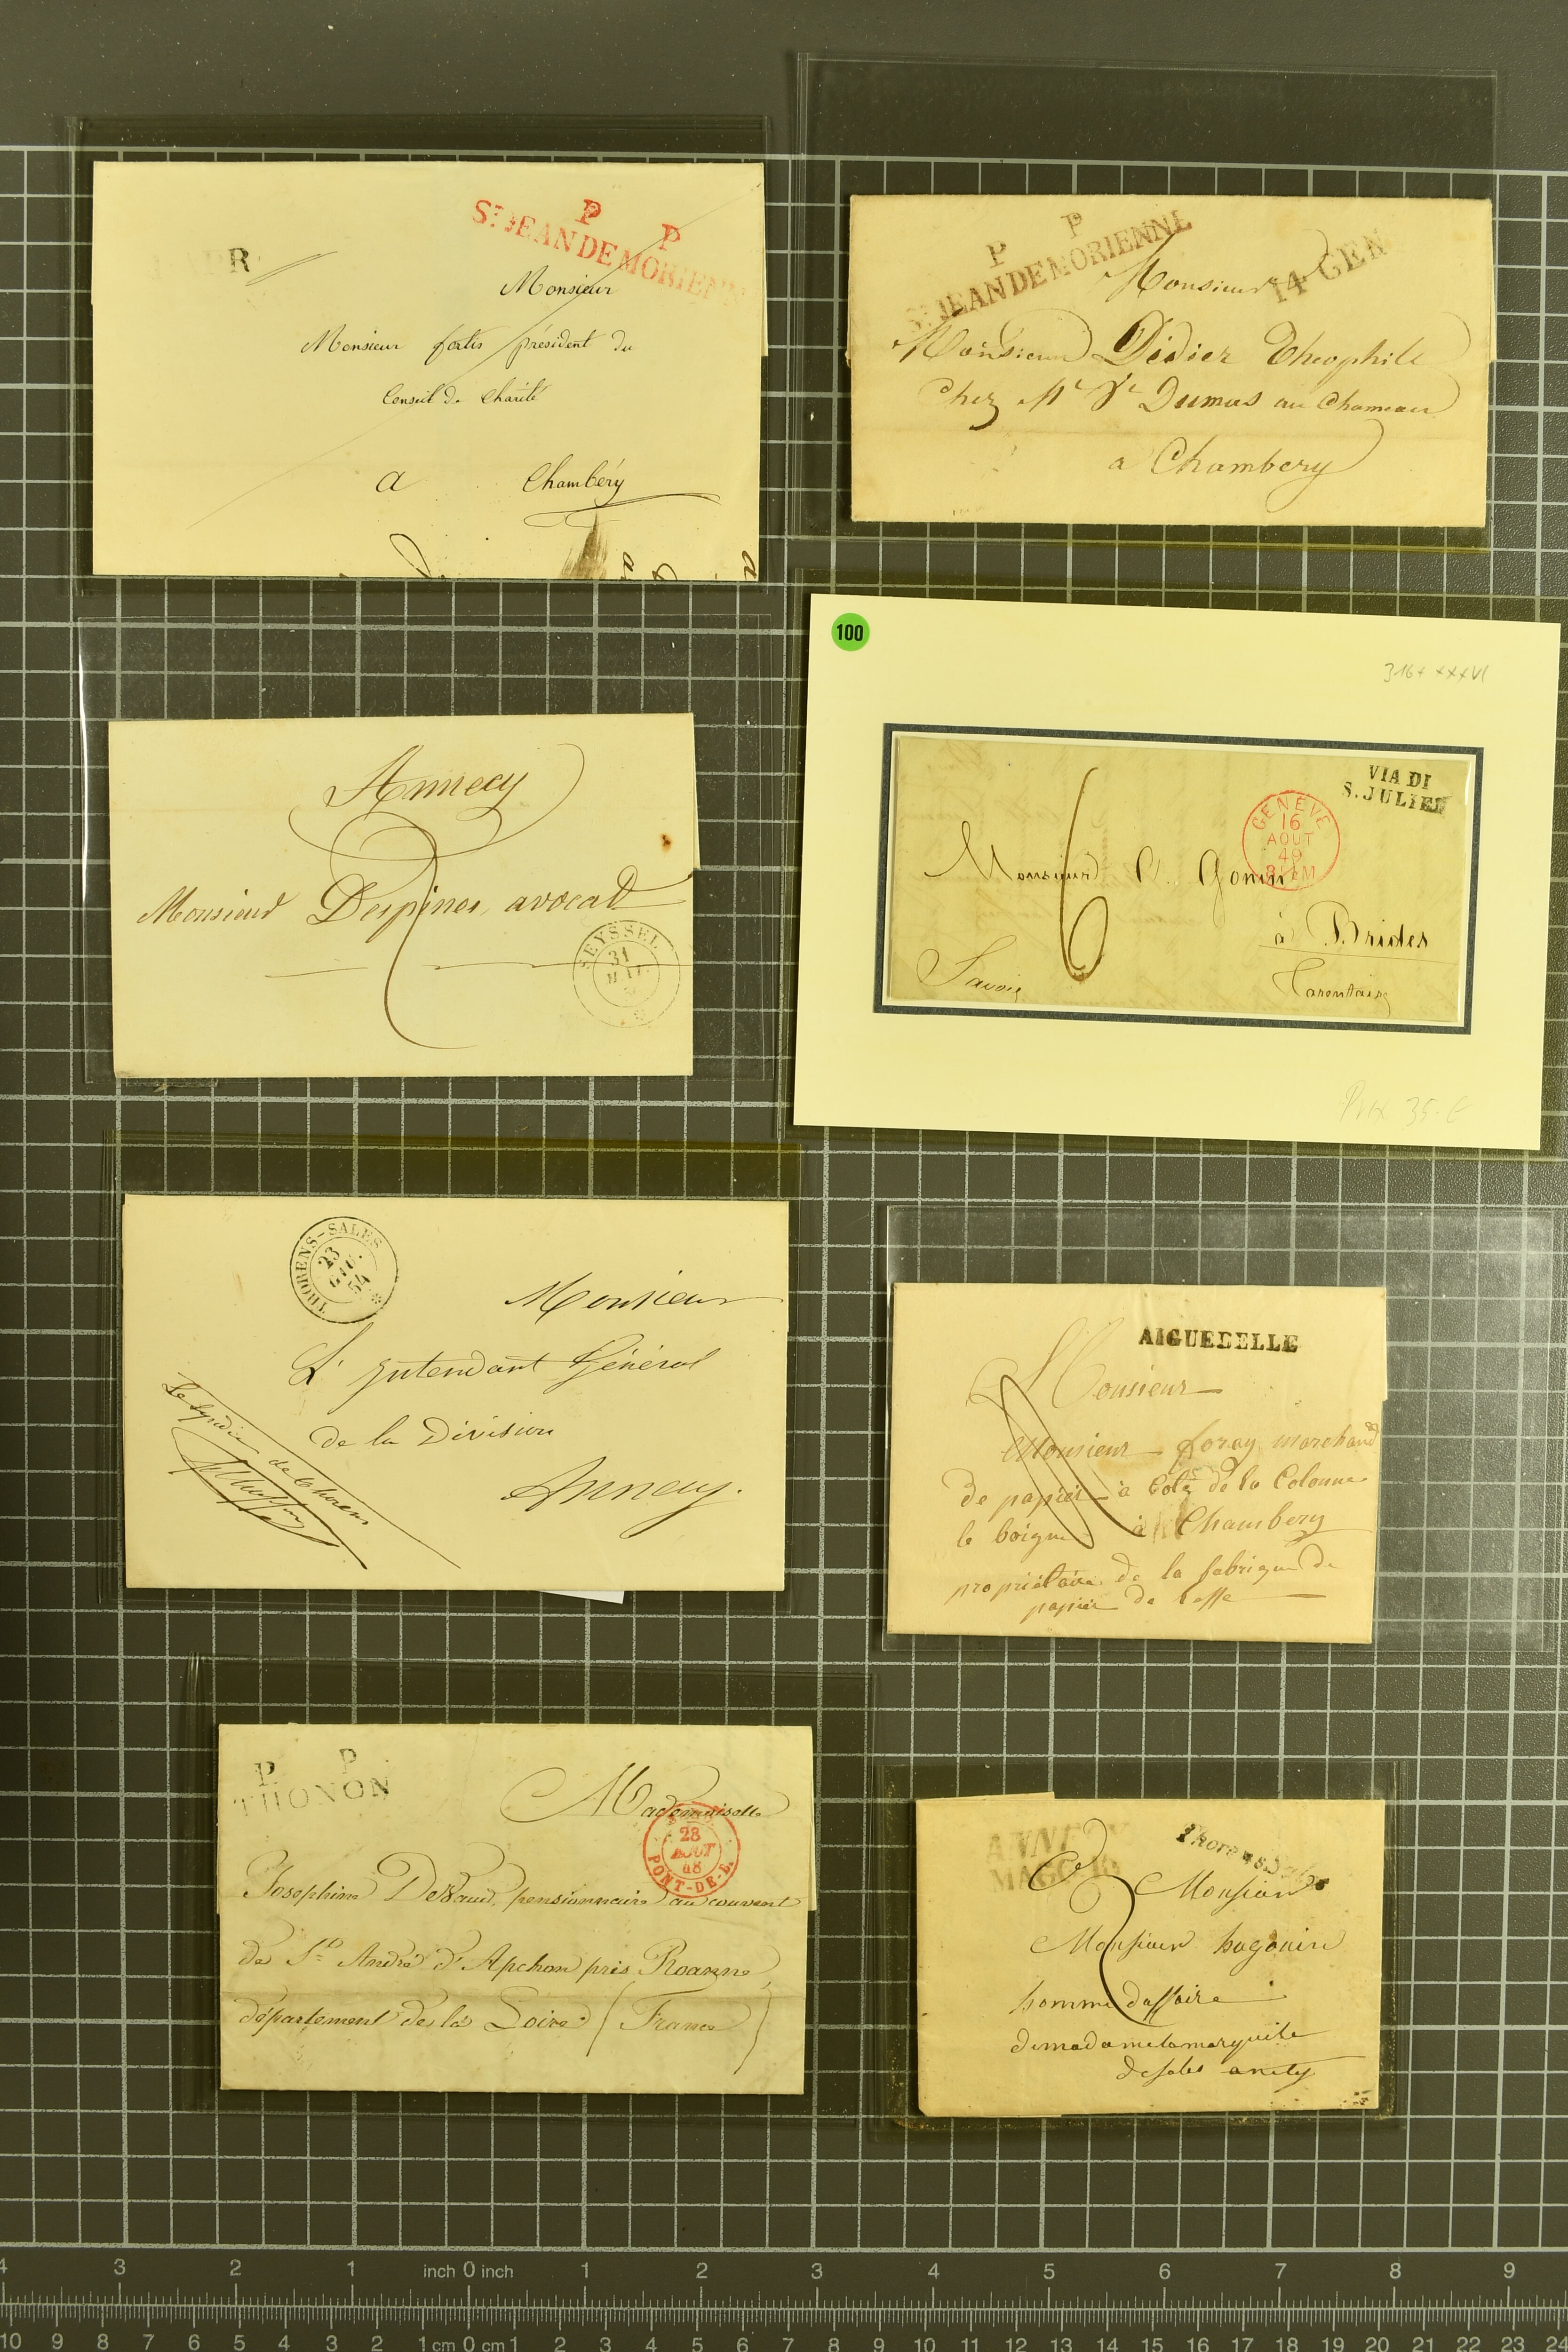 P P
St. JEAN DE MORIENN
R
Monsieur
Monsieur fortis président du
Conseil de Charité
a Chambéry
P P
St. JEAN DE MORIENNE
14 GEN
Monsieur
Monsieur Didier Theophile
Chez Mr Ve Dumas au Chameau
a Chambery
Annecy
Monsieur Despines, avocat
2
SEYSSEL
31
100
316+ XXXVI
VIA DI
S. JULIEN
GENÈVE
16
AOUT
49
6
Monsieur Gonin
à Brides
Savoie
Tarentaise
Prix 35.€
THORENS-SALES
23
GIU.
54
Monsieur
L'Intendant Général
de la Division
Annecy.
Le Syndic de Thorens
AIGUEBELLE
Monsieur
Monsieur foray marchand
de papier à Coté de la Colonne
de boigne à Chambery
propriétaire de la fabrique de
papier de
P P
THONON
Mademoiselle
28
AOUT
48
PONT-DE-B.
Josephine Devaud, pensionnaire au couvent
de St. André d'Apchon près Roanne,
département de la Loire (France)
ANNECY
MAGGIO
Thorens Sales
3
Monsieur
Monsieur hugonin
homme daffaire
de madame la marquise
de sales anecy
4 3 2 1 inch 0 inch 1 2 3 4 5 6 7 8 9
10 9 8 7 6 5 4 3 2 1 cm 0 cm 1 2 3 4 5 6 7 8 9 10 11 12 13 14 15 16 17 18 19 20 21 22 23 24